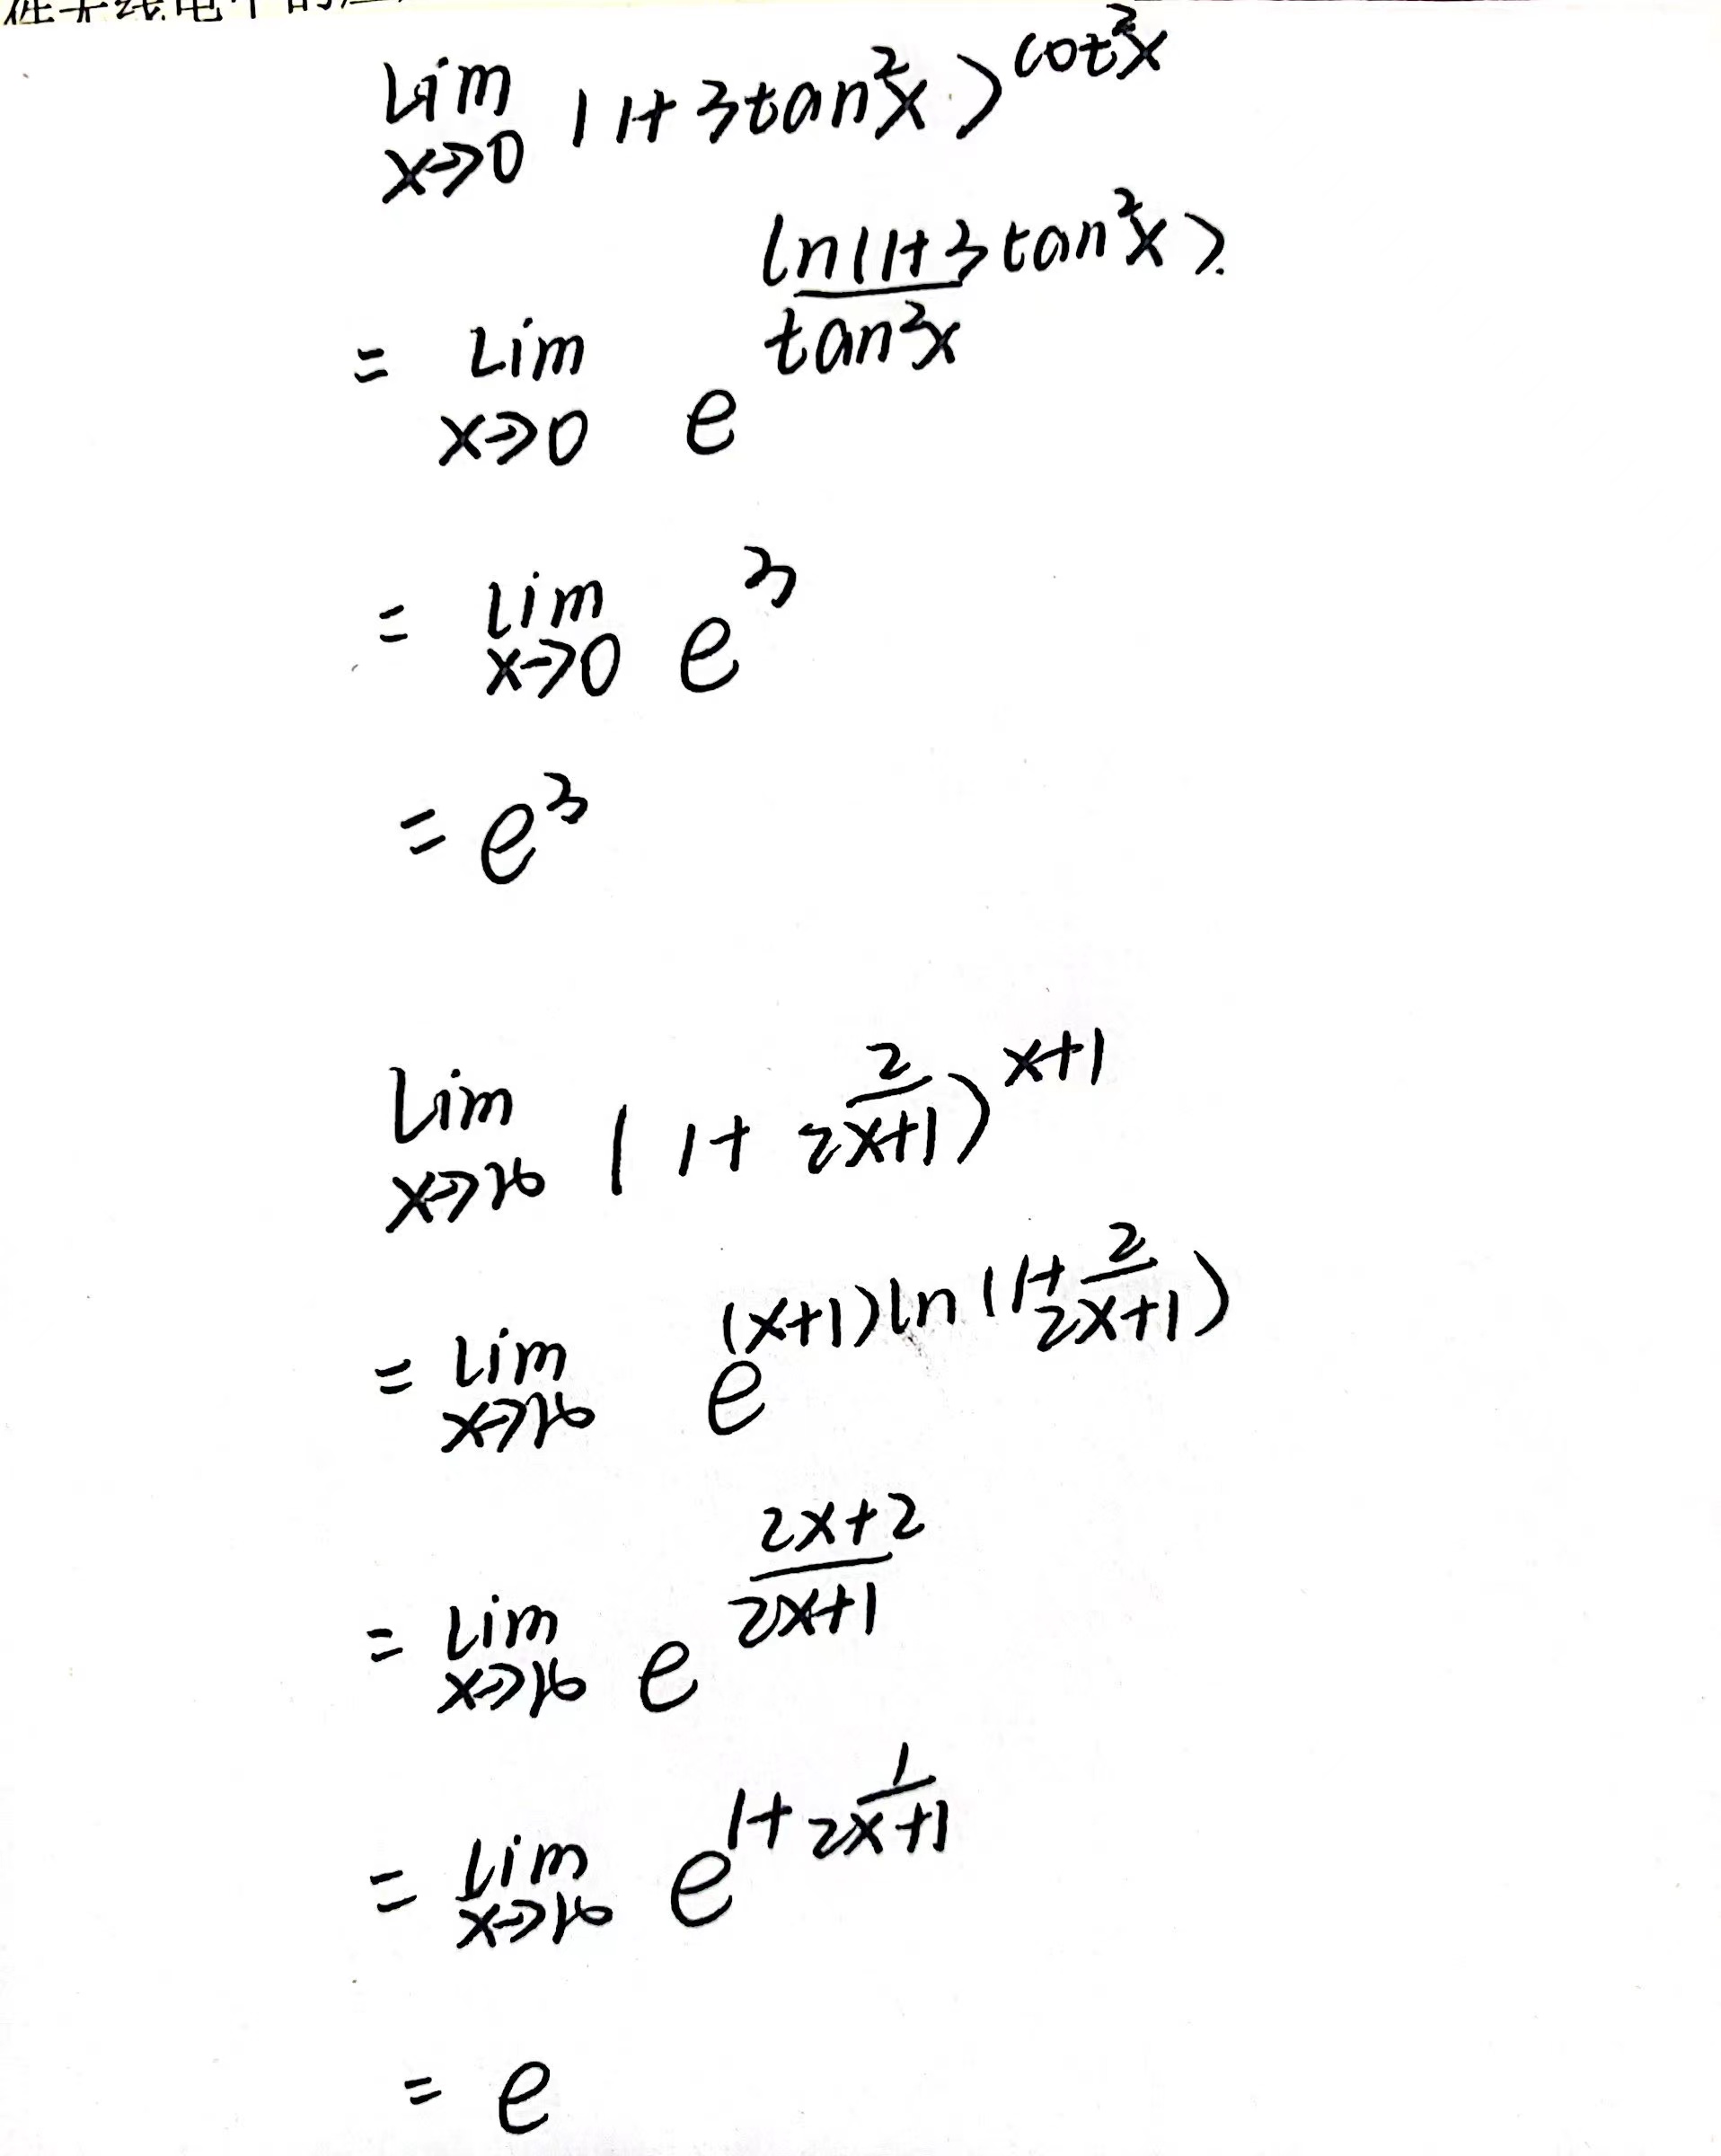 lim x→0 (1+3tan²x)^cot²x
= lim x→0 e^(ln(1+3tan²x)/tan²x)
= lim x→0 e³
= e³
lim x→∞ (1+2/(2x+1))^(x+1)
= lim x→∞ e^((x+1)ln(1+2/(2x+1)))
= lim x→∞ e^((2x+2)/(2x+1))
= lim x→∞ e^(1+1/(2x+1))
= e